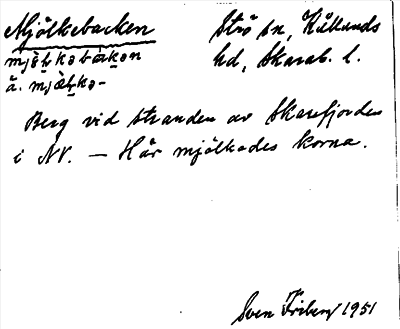 Mjölkebacken
Strö sn, Kållands
hd, Skarab. l.
ä. mjölkə-
Berg vid stranden av Skarefjorden
i NV. — Här mjölkades korna.
Sven Friberg 1951